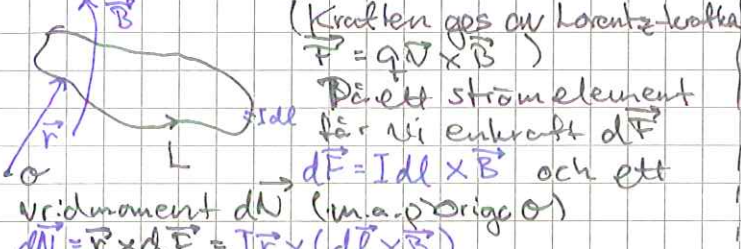 B⃗
(Kraften ges av Lorentz-krafka
F⃗ = qv⃗ × B⃗ )
På ett strömelement
Idl
får vi en kraft dF⃗
r⃗
L
dF⃗ = I dl × B⃗ och ett
O
vridmoment dN⃗ (m.a.p origo O)
dN⃗ = r⃗ × dF⃗ = I r⃗ × (dl⃗ × B⃗)